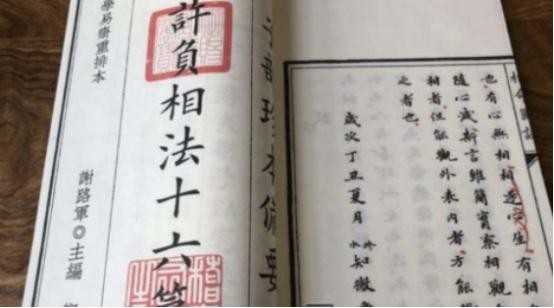 也有心無相相逐心生有相
隨心滅斯言雖簡實察相觀
相者但能觀外表內者方能
之者也
歲次丁丑夏月
子部珍本備要
許負相法十六
學易齋重排本
謝路軍◎主編